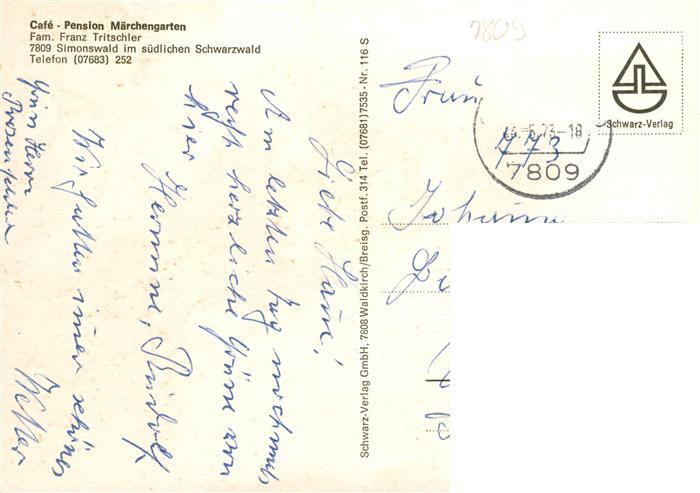 Café - Pension Märchengarten
Fam. Franz Tritschler
7809 Simonswald im südlichen Schwarzwald
Telefon (07683) 252
Liebe Hanne!
Am letzten Tag nochmals
recht herzliche Grüße von
hier
Hermine, Rudolf
Wir hatten immer schönes
Wetter
Schwarz-Verlag GmbH, 7808 Waldkirch/Breisg. Postf. 314 Tel. (07681) 7535 - Nr. 116 S
7809
Schwarz-Verlag
73-18
7809
Frau
Johanna